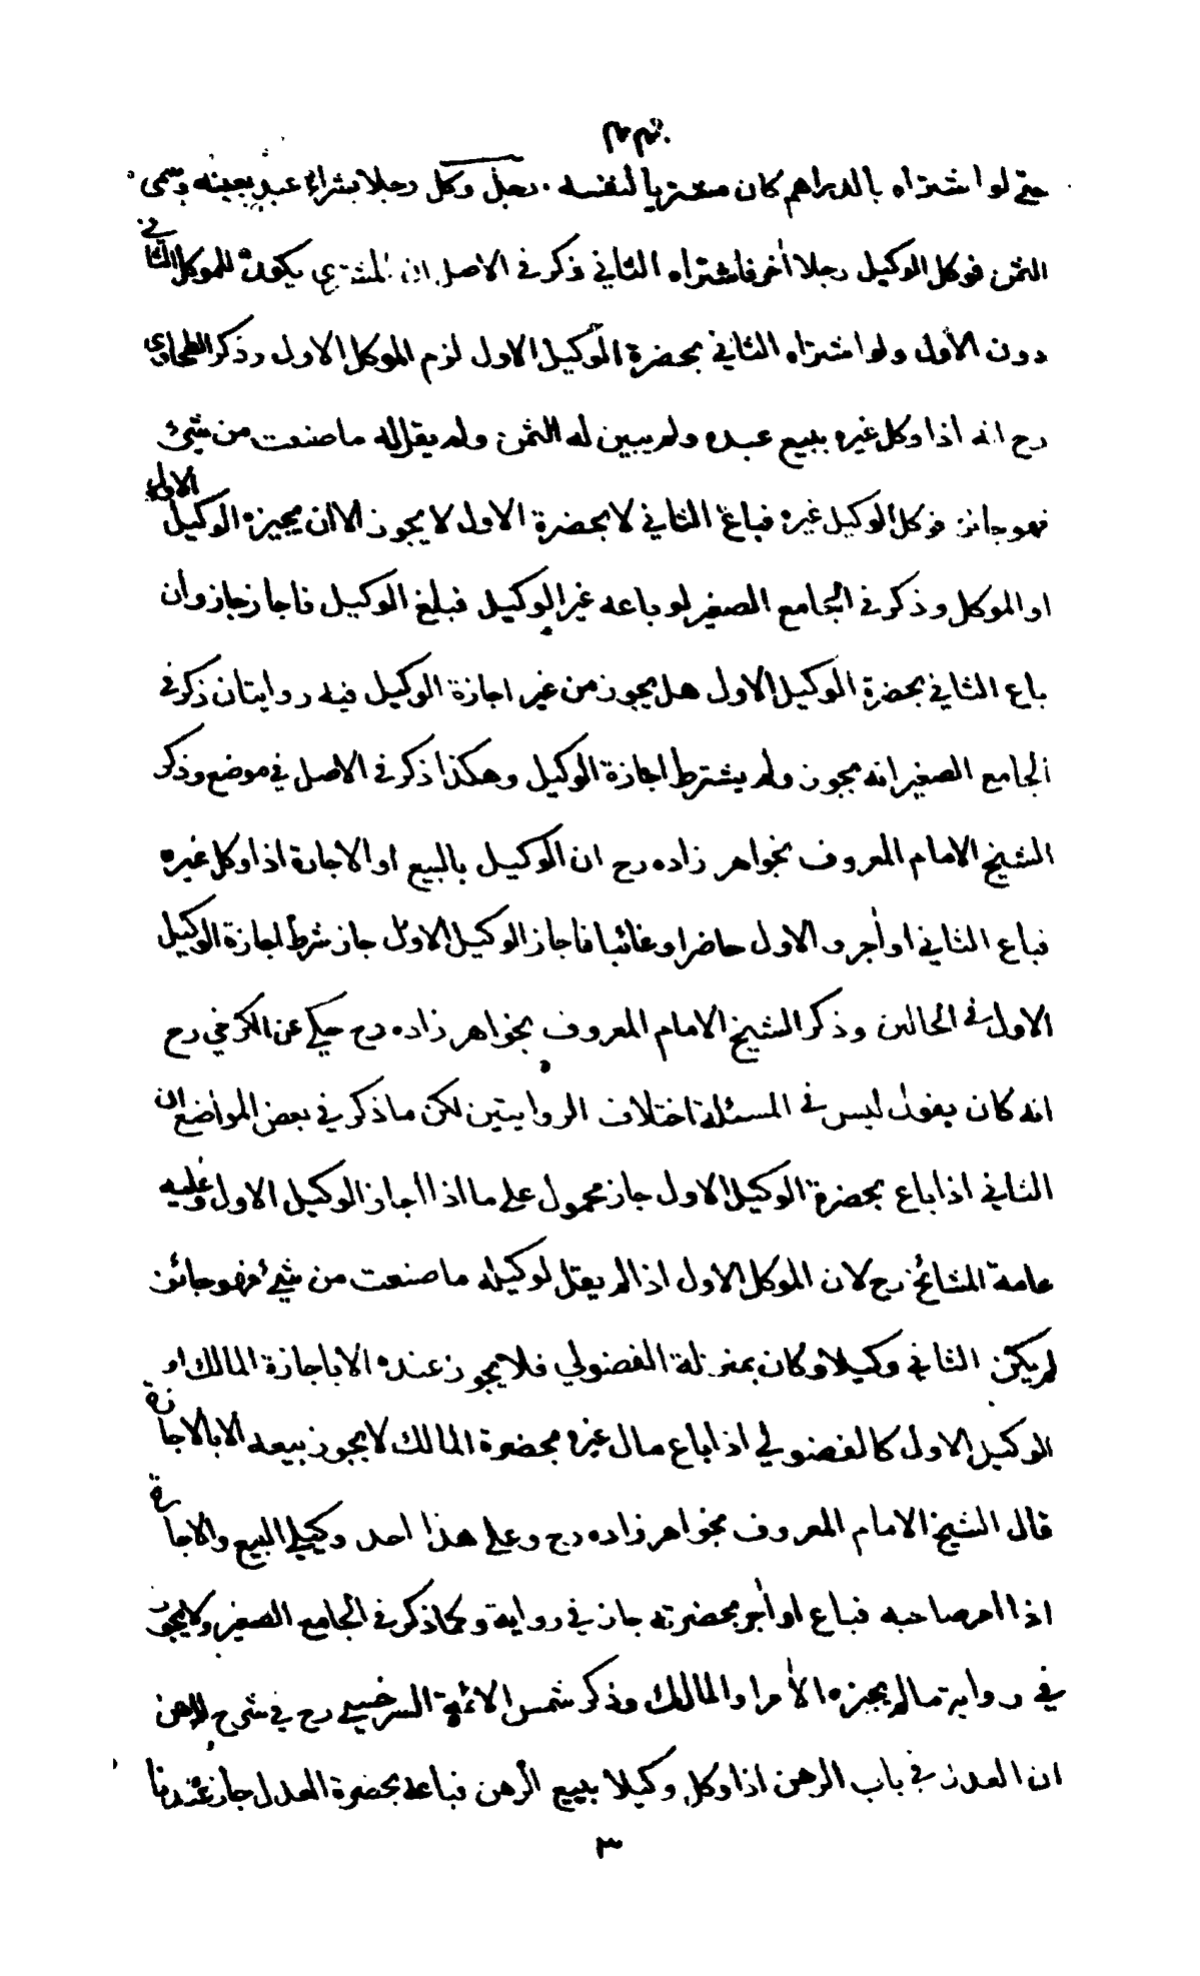 حتى لو اشتراه بالدراهم كان مشتريا لنفسه . رجل وكل رجلا بشراء عبد بعينه وسمى
الثمن فوكل الوكيل رجلا أخر فاشتراه الثاني ذكر في الاصل ان المشتري يكون للموكل الثاني
دون الأول ولو اشتراه الثاني بحضرة الوكيل الاول لزم الموكل الاول وذكر الطحاوي
رح انه اذا وكل غيره ببيع عبده ولم يبين له الثمن ولم يقل له ما صنعت من شئ
فهو جائز فوكل الوكيل غيره فباع الثاني لا بحضرة الاول لا يجوز الا ان يجيزه الوكيل الاول
او الموكل وذكر في الجامع الصغير لو باعه غير الوكيل فبلغ الوكيل فاجاز جاز وان
باع الثاني بحضرة الوكيل الاول هل يجوز من غير اجازة الوكيل فيه روايتان ذكر في
الجامع الصغير انه يجوز ولم يشترط اجازة الوكيل وهكذا ذكر في الاصل في موضع وذكر
الشيخ الامام المعروف بخواهر زاده رح ان الوكيل بالبيع او الاجارة اذا وكل غيره
فباع الثاني او أجر و الاول حاضر او غائب فاجاز الوكيل الاول جاز شرط اجازة الوكيل
الاول في الحالين وذكر الشيخ الامام المعروف بخواهر زاده رح حكي عن الكرخي رح
انه كان يقول ليس في المسئلة اختلاف الروايتين لكن ما ذكر في بعض المواضع ان
الثاني اذا باع بحضرة الوكيل الاول جاز محمول على ما اذا اجاز الوكيل الاول وعليه
عامة المشائخ رح لان الموكل الاول اذا لم يقل لوكيله ما صنعت من شئ فهو جائز
لم يكن الثاني وكيلا وكان بمنزلة الفضولي فلا يجوز عنده الا باجازة المالك او
الوكيل الاول كالفضولي اذا باع مال غيره بحضرة المالك لا يجوز بيعه الا بالاجازة
قال الشيخ الامام المعروف بخواهر زاده رح وعلى هذا احد وكيلي البيع والاجارة
اذا امر صاحبه فباع او أجر بحضرته جاز في رواية وكما ذكر في الجامع الصغير ولا يجوز
في رواية ما لم يجزه الأمر او المالك وذكر شمس الائمة السرخسي رح في شرح الرهن
ان العدل في باب الرهن اذا وكل وكيلا ببيع الرهن فباعه بحضرة العدل جاز عندنا
٣